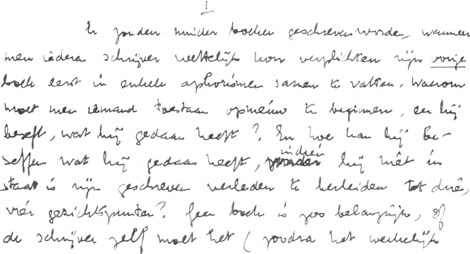 I
Er zouden minder boeken geschreven worden, wanneer
men iedere schrijver wettelijk kon verplichten zijn vorige
boek eerst in enkele aphorismen samen te vatten. Waarom
moet men iemand toestaan opnieuw te beginnen, eer hij
beseft, wat hij gedaan heeft? En hoe kan hij be-
seffen wat hij gedaan heeft, indien hij niet in
staat is zijn geschreven verleden te herleiden tot drie,
vier gezichtspunten? Geen boek is zoo belangrijk, of
de schrijver zelf moet het (zoodra het werkelijk